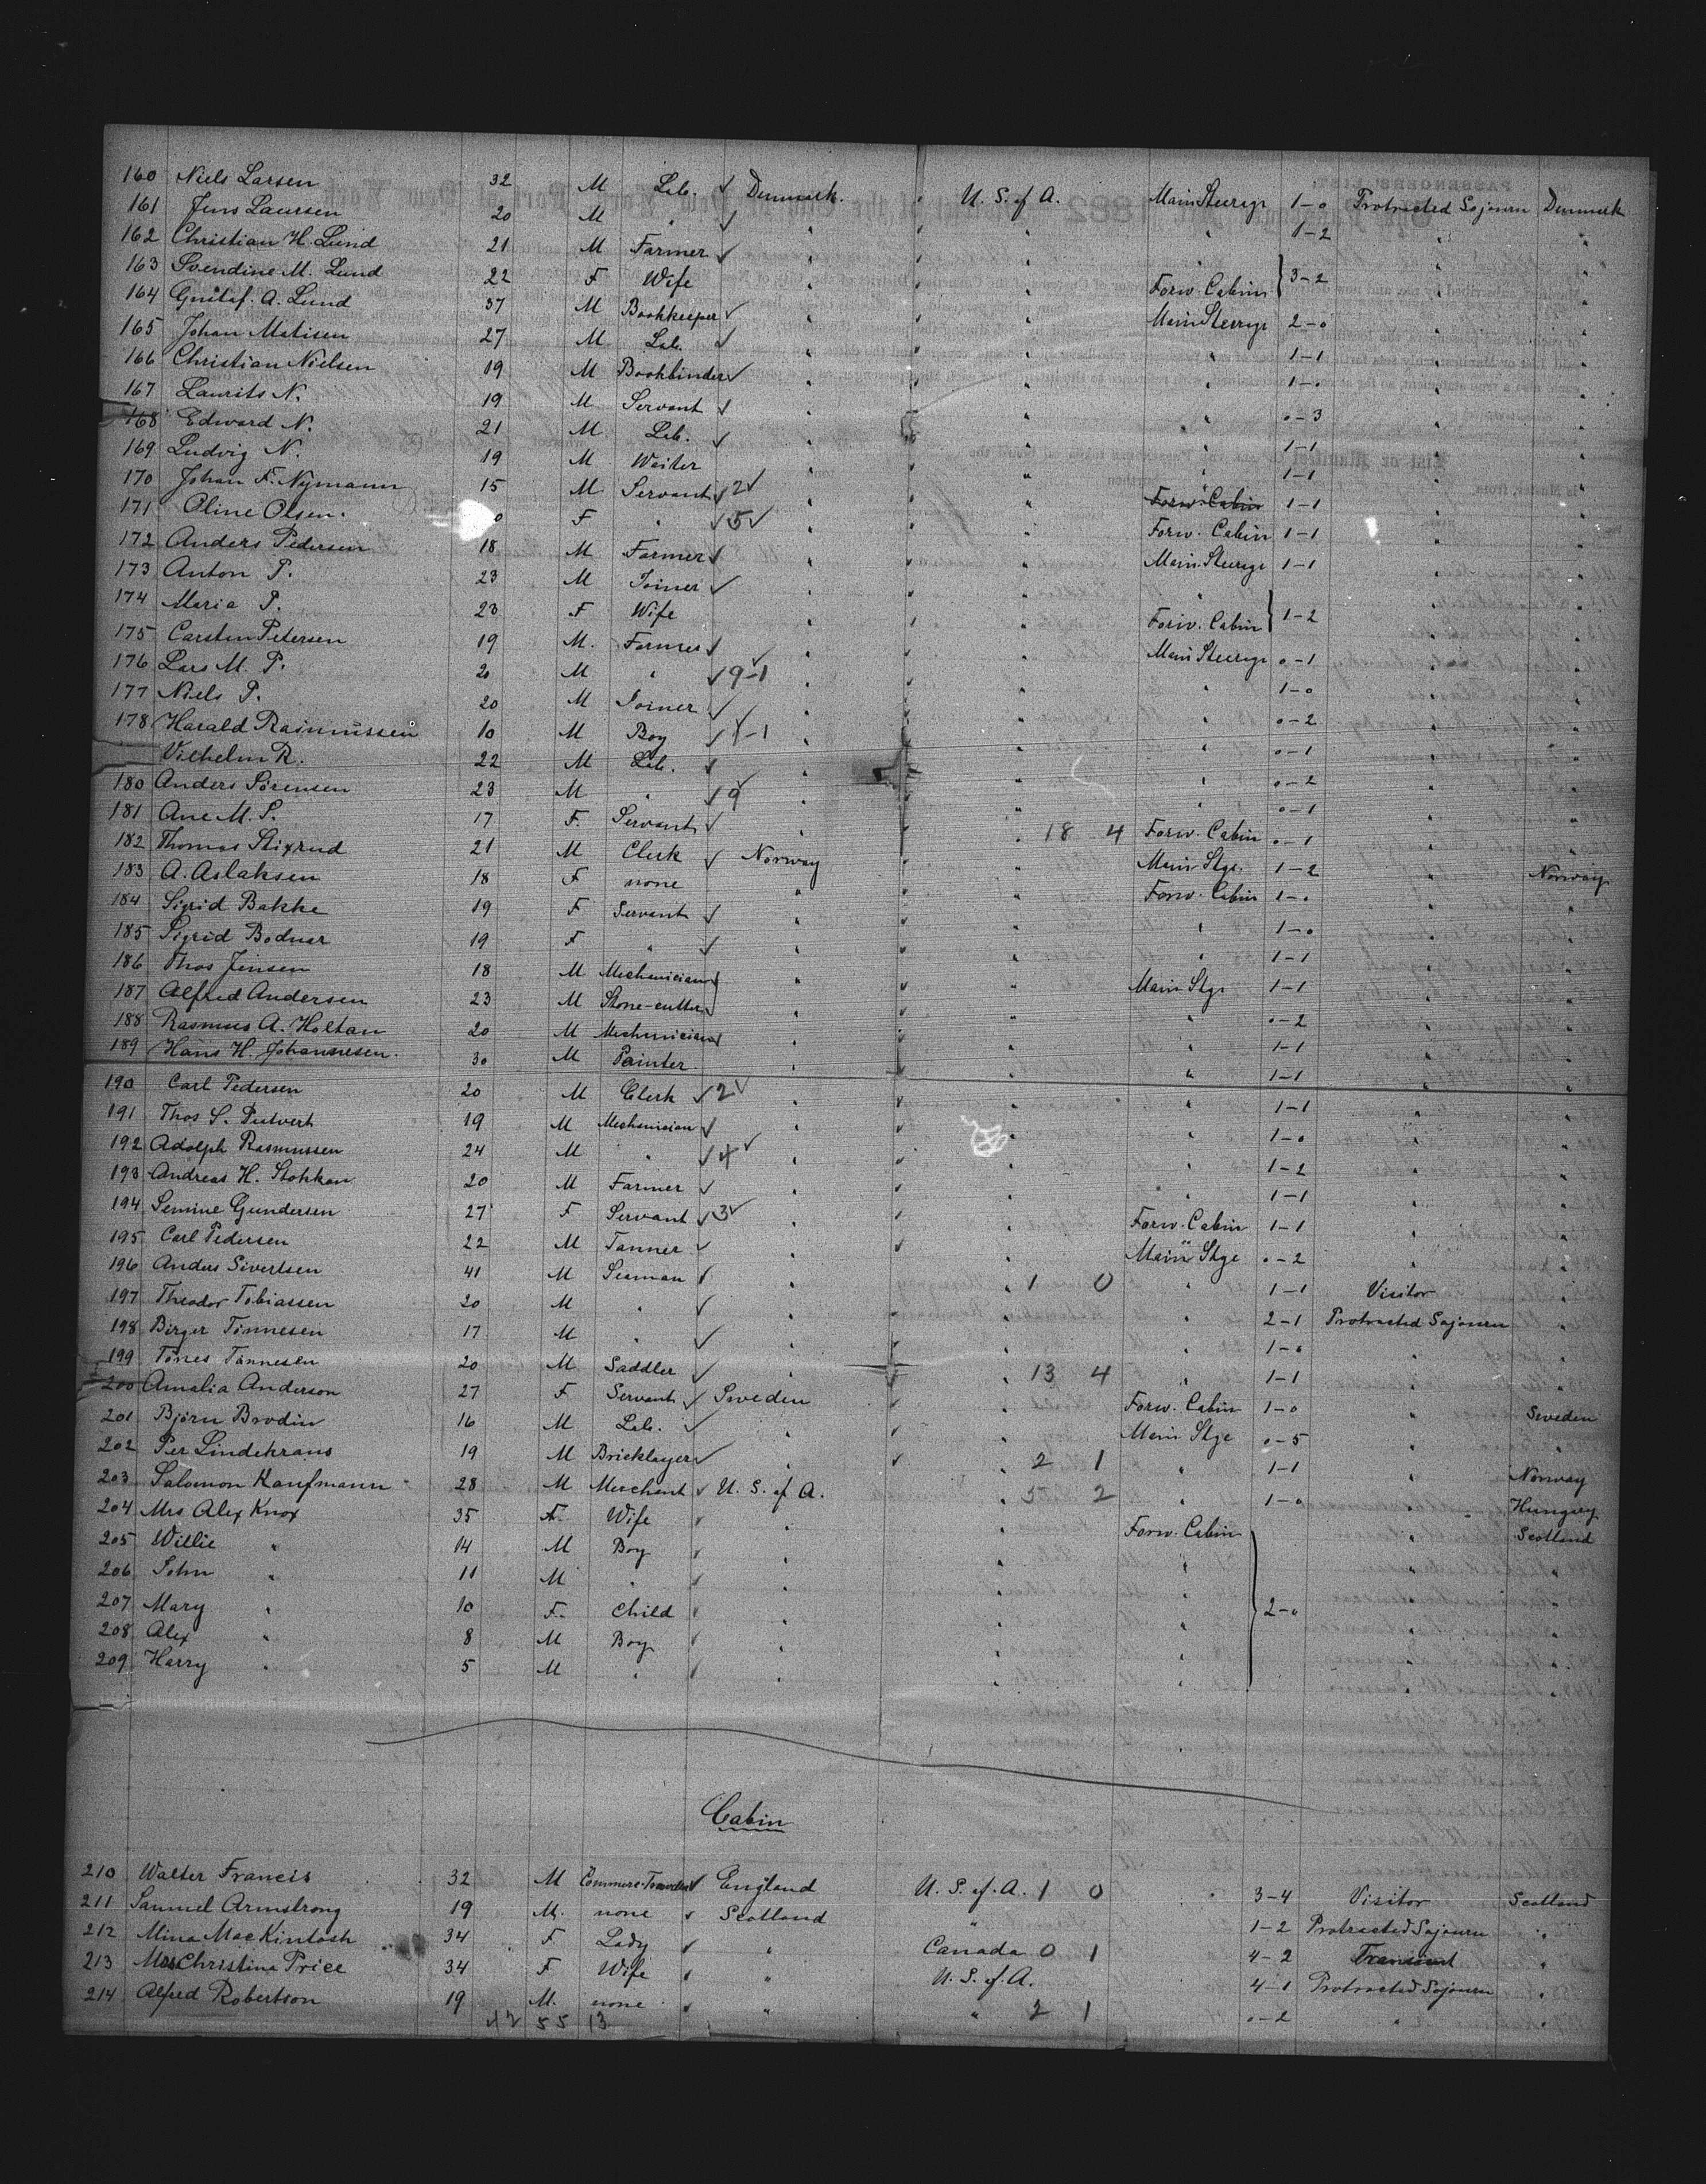 160 Niels Larsen 32 M Lab. ✓ Denmark. " U. S. of A. Main Steerage 1-0 Protracted Sojourn Denmark
161 Jens Laursen 20 M " ✓ " " " " 1-2 " "
162 Christian H. Lund 21 M Farmer ✓ " " " " 3-2 " "
163 Svendine M. Lund 22 F Wife " " " Forw. Cabin " "
164 Gustaf. A. Lund 37 M Bookkeeper ✓ " " " Main Steerage 2-0 " "
165 Johan Matisen 27 M Lab. ✓ " " " " 1-1 " "
166 Christian Nielsen 19 M Bookbinder ✓ " " " " 1-0 " "
167 Laurits N. 19 M Servant ✓ " " " " 0-3 " "
168 Edward N. 21 M Lab. ✓ " " " " 1-1 " "
169 Ludvig N. 19 M Waiter " " " " 1-1 " "
170 Johan F. Nymann 15 M Servant ✓ 2 ✓ " " " Forw. Cabin 1-1 " "
171 Oline Olsen. 0 F " ✓ 5 ✓ " " " Forw. Cabin 1-1 " "
172 Anders Pedersen 18 M Farmer ✓ " " " Main Steerage 1-1 " "
173 Anton P. 23 M Joiner ✓ " " " " 1-2 " "
174 Maria P. 23 F Wife " " " Forw. Cabin " "
175 Carsten Petersen 19 M. Farmer ✓ " " " Main Steerage 0-1 " "
176 Lars M. P. 20 M " ✓ 9-1 " " " " 1-0 " "
177 Niels P. 20 M Joiner ✓ " " " " 0-2 " "
178 Harald Rasmussen 10 M Boy ✓ 1-1 " " " " 0-1 " "
Vilhelm R. 22 M Lab. ✓ " " " " 0-2 " "
180 Anders Sörensen 23 M " ✓ 9 " " " " 0-1 " "
181 Ane M. S. 17 F. Servant ✓ " " " 18 4 Forw. Cabin 0-1 " "
182 Thomas Stixrud 21 M Clerk ✓ Norway " " Main Stge. 1-2 " Norway
183 A. Aslaksen 18 F none " " " Forw. Cabin 1-0 " "
184 Sigrid Bakke 19 F Servant ✓ " " " " 1-0 " "
185 Sigrid Bodnar 19 F " ✓ " " " " 1-1 " "
186 Thos Jensen 18 M Mechanician ✓ " " " Main Stge 1-1 " "
187 Alfred Andersen 23 M Stone-cutter ✓ " " " " 0-2 " "
188 Rasmus A. Holtan 20 M Mechanician ✓ " " " " 1-1 " "
189 Hans H. Johannesen. 30 M Painter " " " " 1-1 " "
190 Carl Pedersen 20 M Clerk ✓ 2 ✓ " " " " 1-1 " "
191 Thos S. 19 M Mechanician ✓ " " " " 1-0 " "
192 Adolph Rasmussen 24 M " ✓ 4 ✓ " " " " 1-2 " "
193 Andreas H. Stokkan 20 M Farmer ✓ " " " " 1-1 " "
194 Semine Gundersen 27 F Servant ✓ 3 ✓ " " " Forw. Cabin 1-1 " "
195 Carl Pedersen 22 M Tanner ✓ " " " Main Stge 0-2 " "
196 Anders Sivertsen 41 M Seaman ✓ " " 1 0 " 1-1 Visitor "
197 Theodor Tobiassen 20 M " ✓ " " " " 2-1 Protracted Sojourn "
198 Birger Tönnesen 17 M " ✓ " " " " 1-0 " "
199 Tönes Tönnesen 20 M Saddler ✓ " " " 13 4 " 1-1 " "
200 Amalia Anderson 27 F Servant ✓ Sweden " " Forw. Cabin 1-0 " Sweden
201 Björn Brodin 16 M Lab. ✓ " " " Main Stge 0-5 " "
202 Per Lindekrans 19 M Bricklayer ✓ " " " 2 1 " 1-1 " Norway
203 Salomon Kaufmann 28 M Merchant ✓ U. S. of A. " 55 2 " 1-0 " Hungary
204 Mrs Alex Knox 35 F. Wife ✓ " " Forw. Cabin " Scotland
205 Willie " 14 M Boy ✓ " " " " "
206 John " 11 M " ✓ " " " " "
207 Mary " 10 F. Child ✓ " " " 2-0 " "
208 Alex " 8 M Boy ✓ " " " " "
209 Harry " 5 M " ✓ " " " " "
Cabin
210 Walter Francis 32 M ✓ England U. S. of A. 1 0 " 3-4 Visitor Scotland
211 Samuel Armstrong 19 M. none ✓ Scotland " 1-2 Protracted Sojourn "
212 Mina MacKintosh 34 F Lady ✓ " Canada 0 1 4-2 Transient "
213 Mrs Christina Price 34 F Wife ✓ " U. S. of A. 4-1 Protracted Sojourn "
214 Alfred Robertson 19 M. none ✓ " " 2 1 0-2 " "
42 55 13